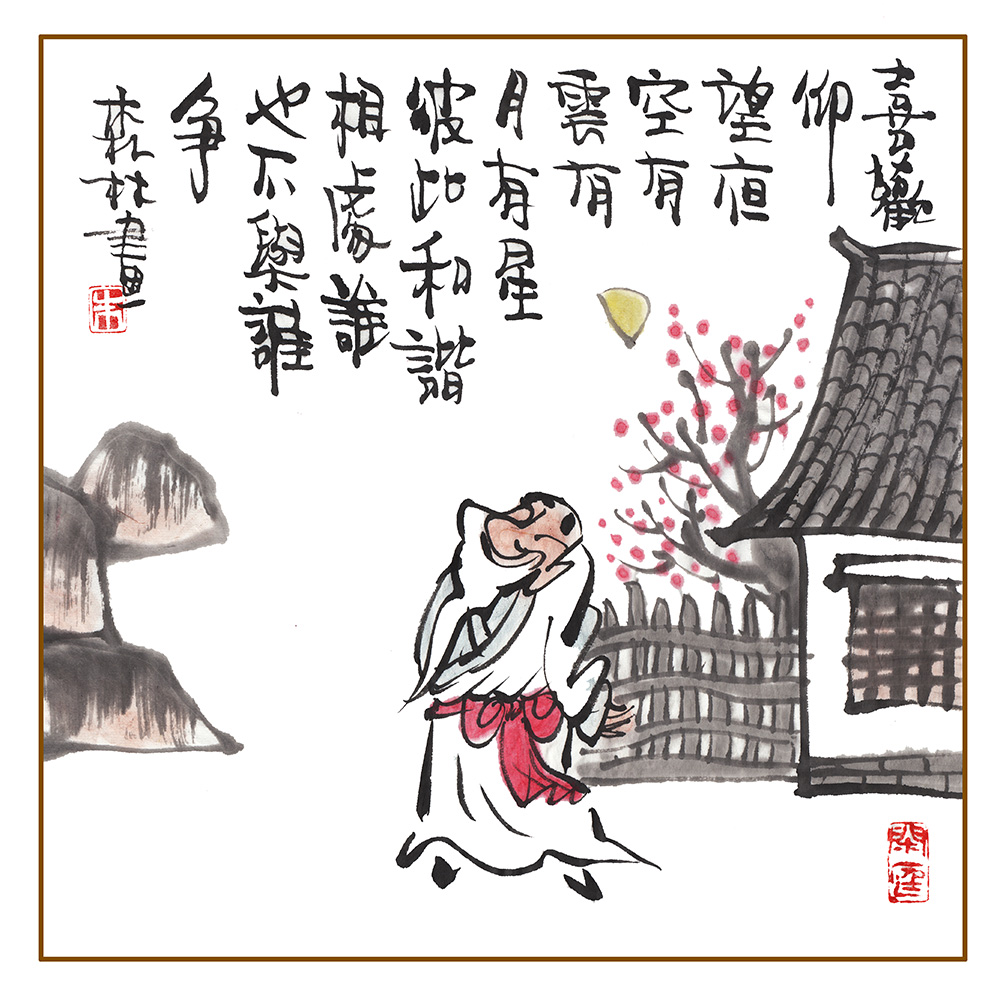 喜歡
仰
望夜
空有
雲有
月有星
彼此和諧
相處誰
也不與誰
争
森林畫
朱